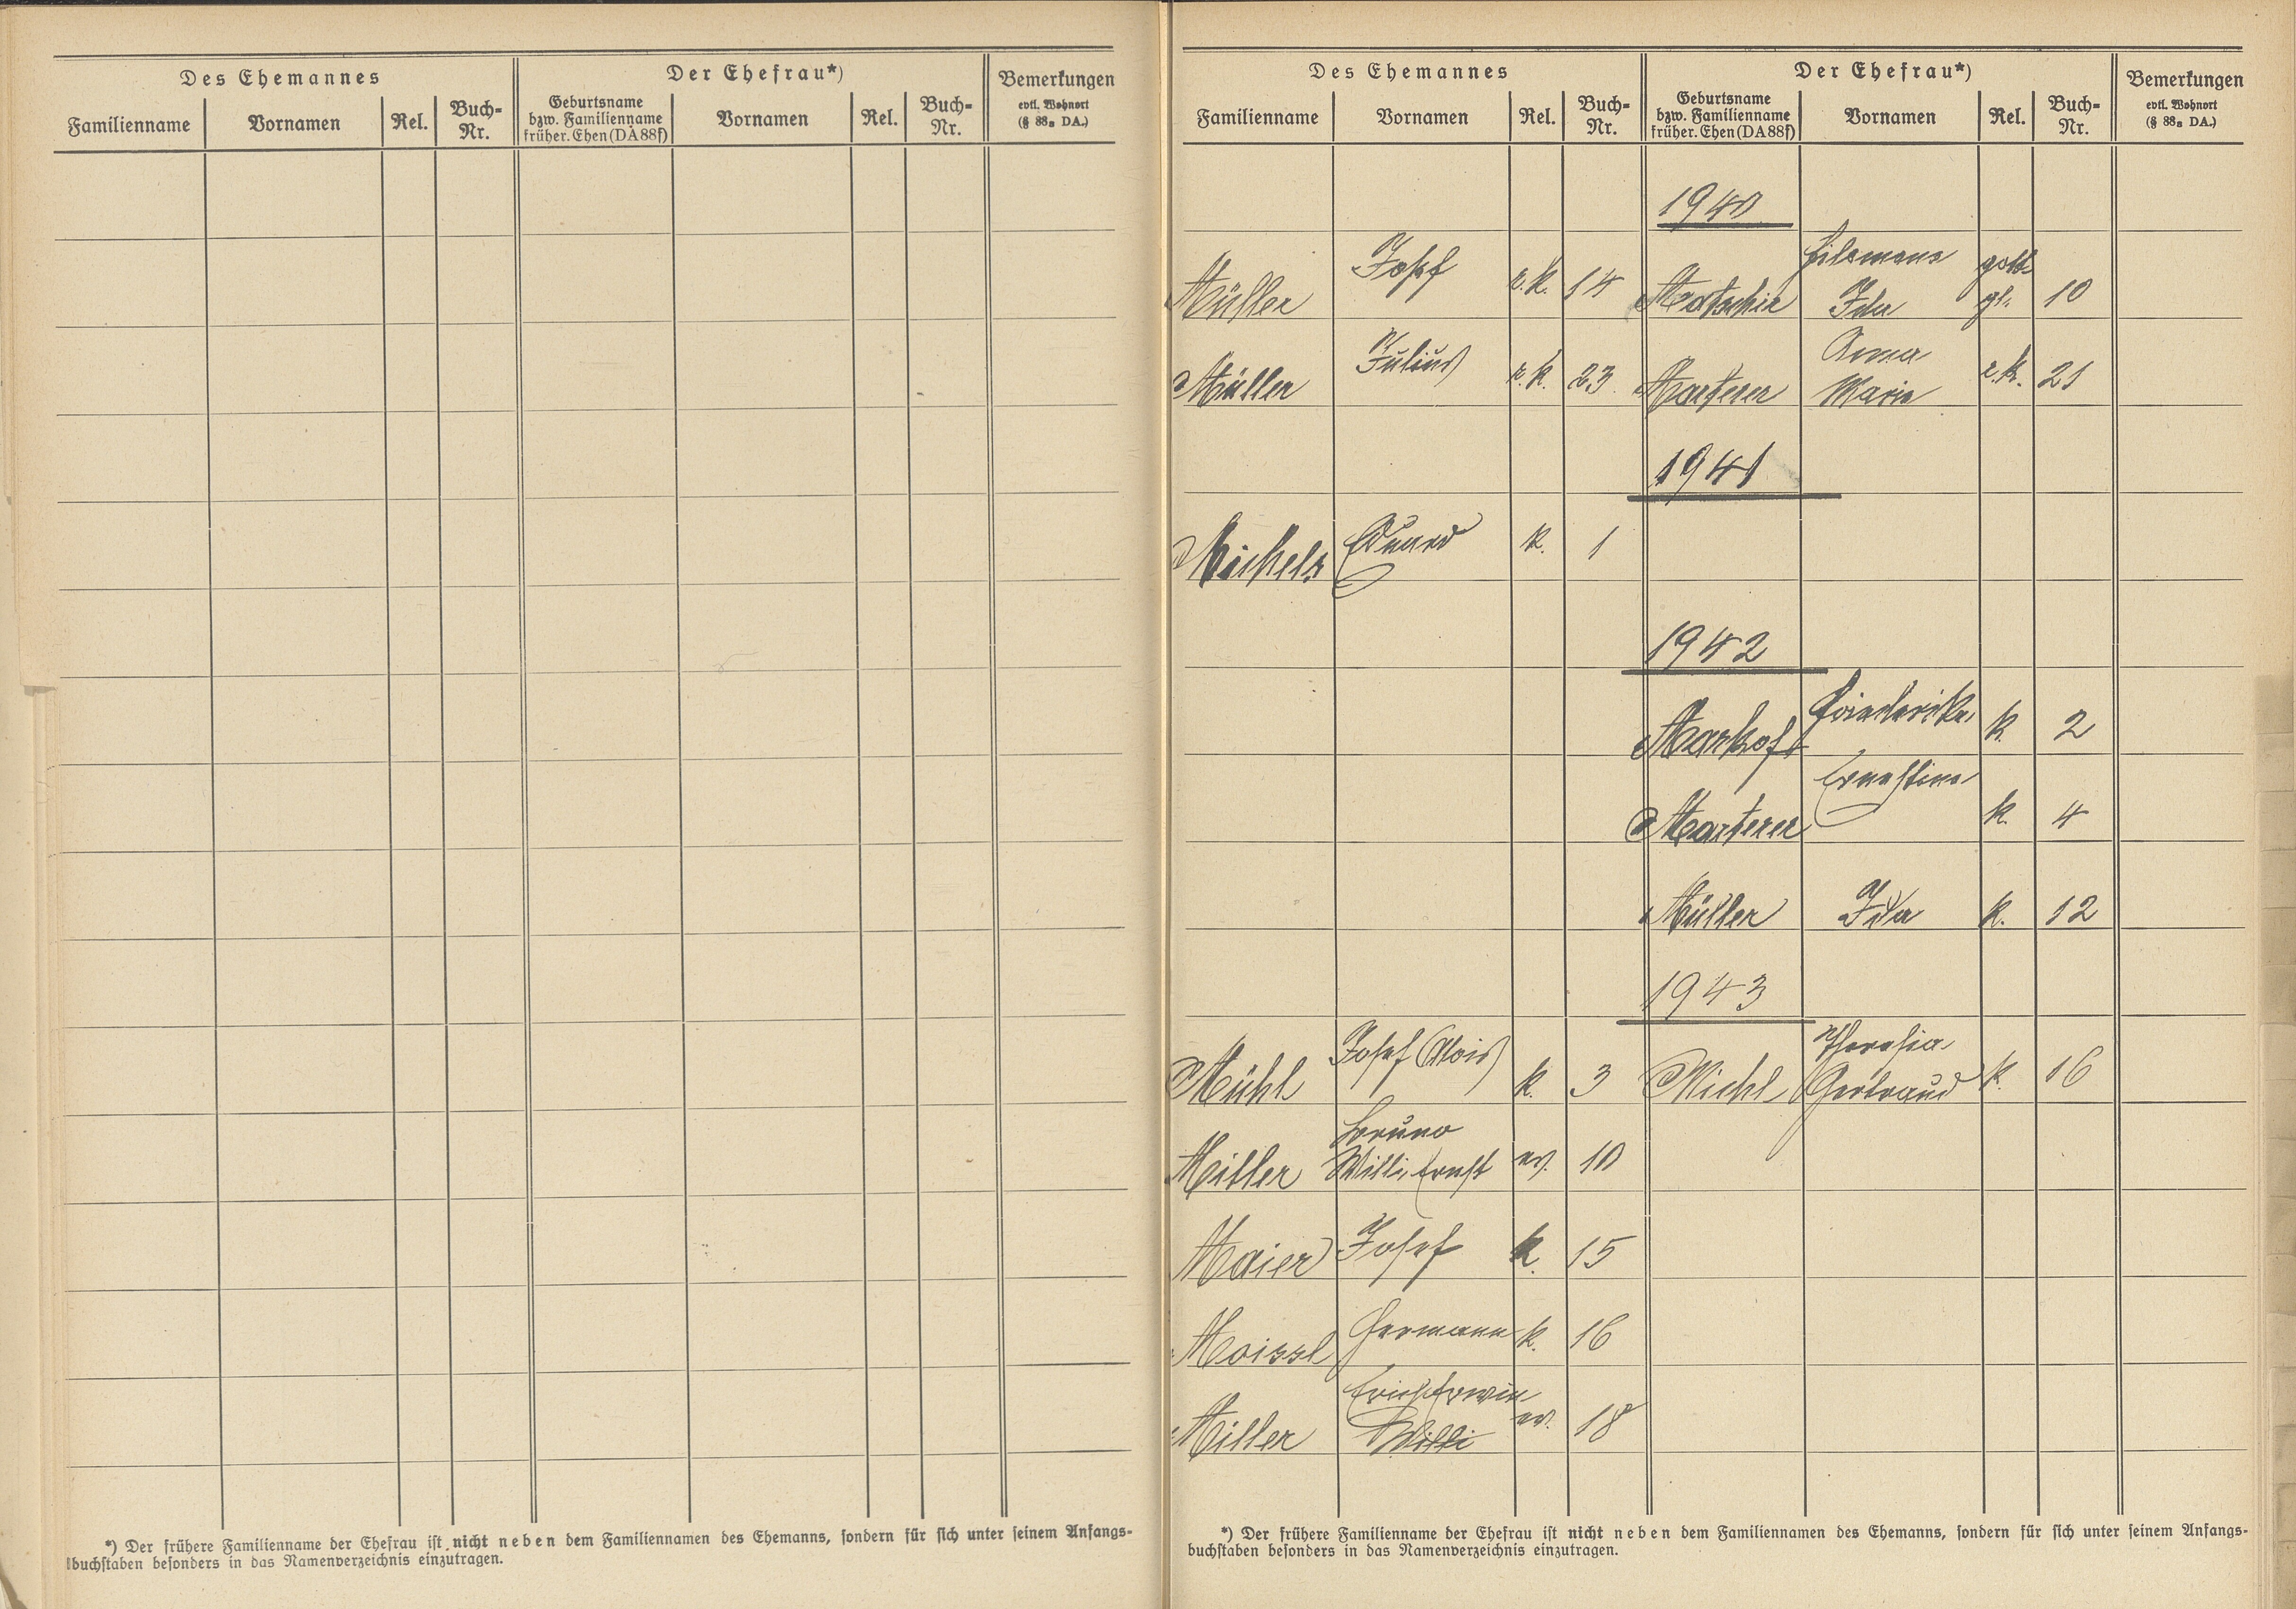 Des Ehemannes Der Ehefrau*) Bemerkungen
evtl. Wohnort
(§ 88a DA.)
Familienname Vornamen Rel. Buch-
Nr. Geburtsname
bzw. Familienname
früher. Ehen (DA 88f) Vornamen Rel. Buch-
Nr.
*) Der frühere Familienname der Ehefrau ist nicht neben dem Familiennamen des Ehemanns, sondern für sich unter seinem Anfangs-
buchstaben besonders in das Namenverzeichnis einzutragen.
Des Ehemannes Der Ehefrau*) Bemerkungen
evtl. Wohnort
(§ 88a DA.)
Familienname Vornamen Rel. Buch-
Nr. Geburtsname
bzw. Familienname
früher. Ehen (DA 88f) Vornamen Rel. Buch-
Nr.
1940
Müller Josef r.k. 14 Motschir Filomena Ida gottgl. 10
Müller Julius r.k. 23 Marterer Anna Maria r.k. 21
1941
Michels Eduard k. 1
1942
Markoft Friederika k. 2
Marterer Ernestine k. 4
Müller Ida k. 12
1943
Mühl Josef Alois k. 3 Michl Theresia Gertraud k. 16
Miller Bruno Willi Ernst ev. 10
Maier Josef k. 15
Moissl Hermann k. 16
Miller Erich Erwin Willi ev. 18
*) Der frühere Familienname der Ehefrau ist nicht neben dem Familiennamen des Ehemanns, sondern für sich unter seinem Anfangs-
buchstaben besonders in das Namenverzeichnis einzutragen.